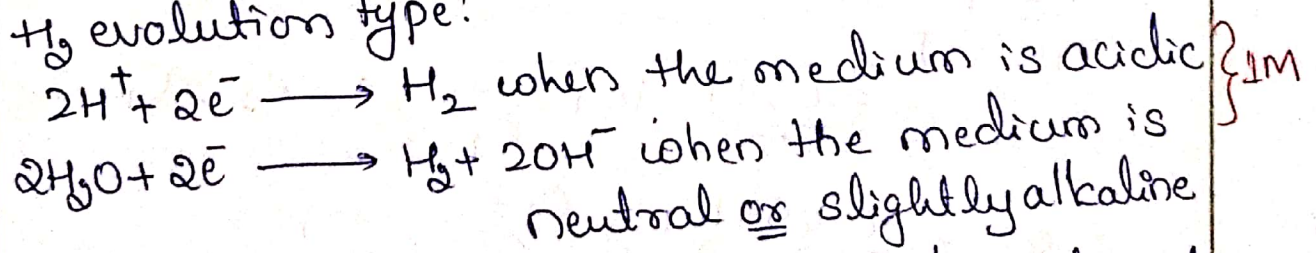 H₂ evolution type:
2H⁺ + 2e⁻ → H₂ when the medium is acidic } 1M
2H₂O + 2e⁻ → H₂ + 2OH⁻ when the medium is
neutral or slightly alkaline